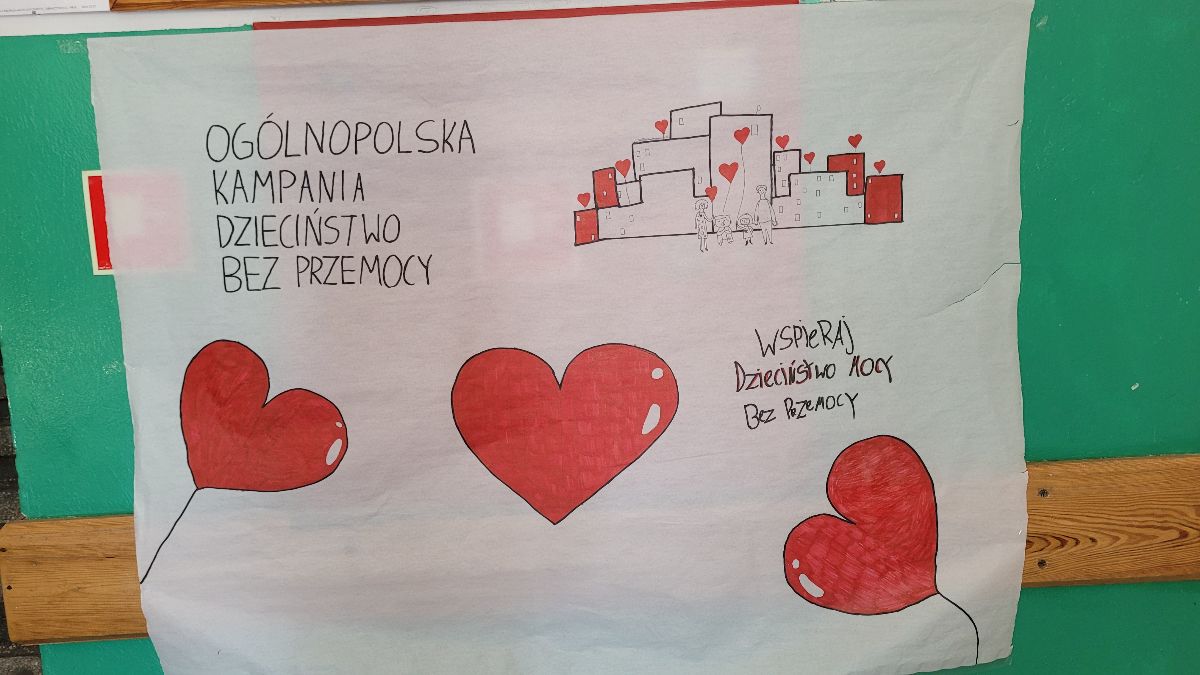 OGÓLNOPOLSKA
KAMPANIA
DZIECIŃSTWO
BEZ PRZEMOCY
WSPIERAJ
DZIECIŃSTWO MOCY
BEZ PRZEMOCY